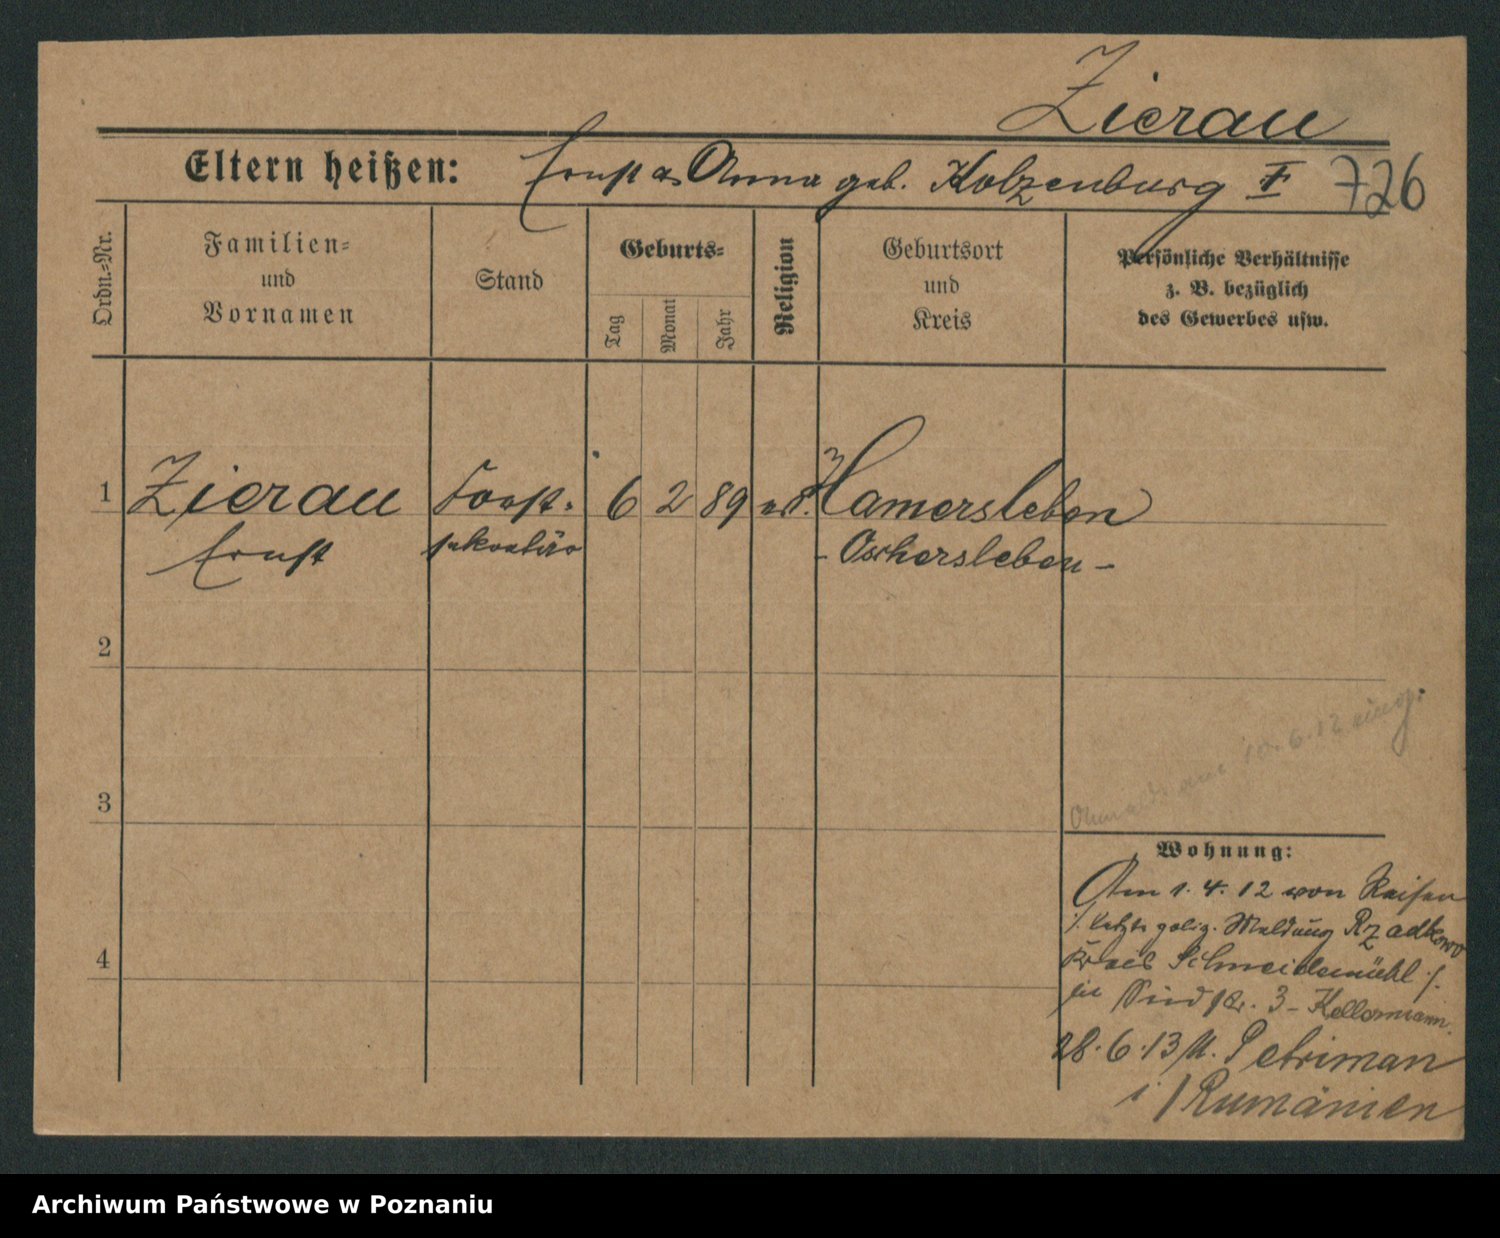 Zierau
Eltern heißen: Ernst Anna geb. Holzenburg 726
Ordn.-Nr.
Familien-
und
Vornamen
Stand
Geburts-
Tag
Monat
Jahr
Religion
Geburtsort
und
Kreis
Persönliche Verhältnisse
z. B. bezüglich
des Gewerbes usw.
1 Zierau Forst- 6 2 89 ev. Hamersleben
Ernst sekretär - Oschersleben -
2
3
10.6.12
Wohnung:
Am 1.4.12 von Reisen
/. letzte poliz. Meldung Rzadkowo
4 Kreis Schneidemühl /.
in 3 - Kellermann.
28.6.13 n. Petriman
i/Rumänien
Archiwum Państwowe w Poznaniu